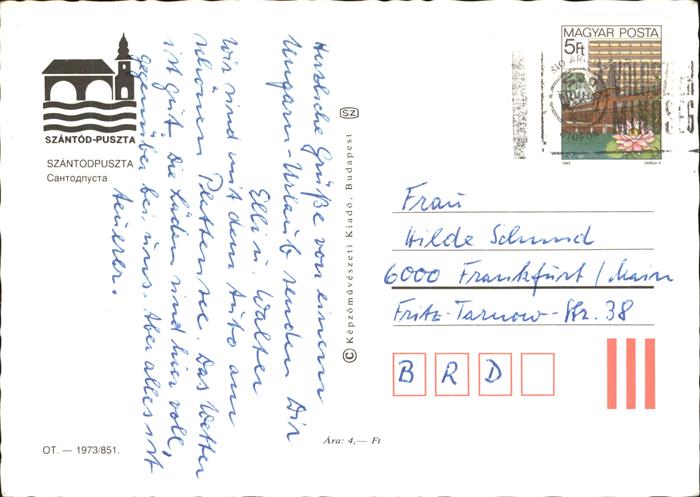 SZÁNTÓD-PUSZTA
SZÁNTÓDPUSZTA
Сантодпуста
Herzliche Grüße von einem
Ungarn-Urlaub senden Dir
Elli u. Walter
Wir sind mit dem Auto am
schönen Plattensee. Das Wetter
ist gut. Die Läden sind hier voll,
gegenüber bei uns. Aber alles ist
teuerer.
OT. — 1973/851.
SZ
© Képzőművészeti Kiadó, Budapest
Ára: 4,— Ft
MAGYAR POSTA
5Ft
1983
VARGA P.
Frau
Hilde Schmid
6000 Frankfurt / Main
Fritz-Tarnow-Str. 38
B R D